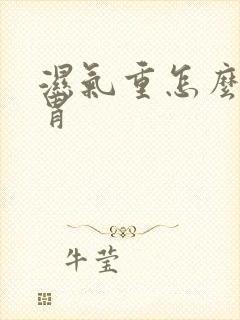 濕氣重怎麼
胃
牛莹